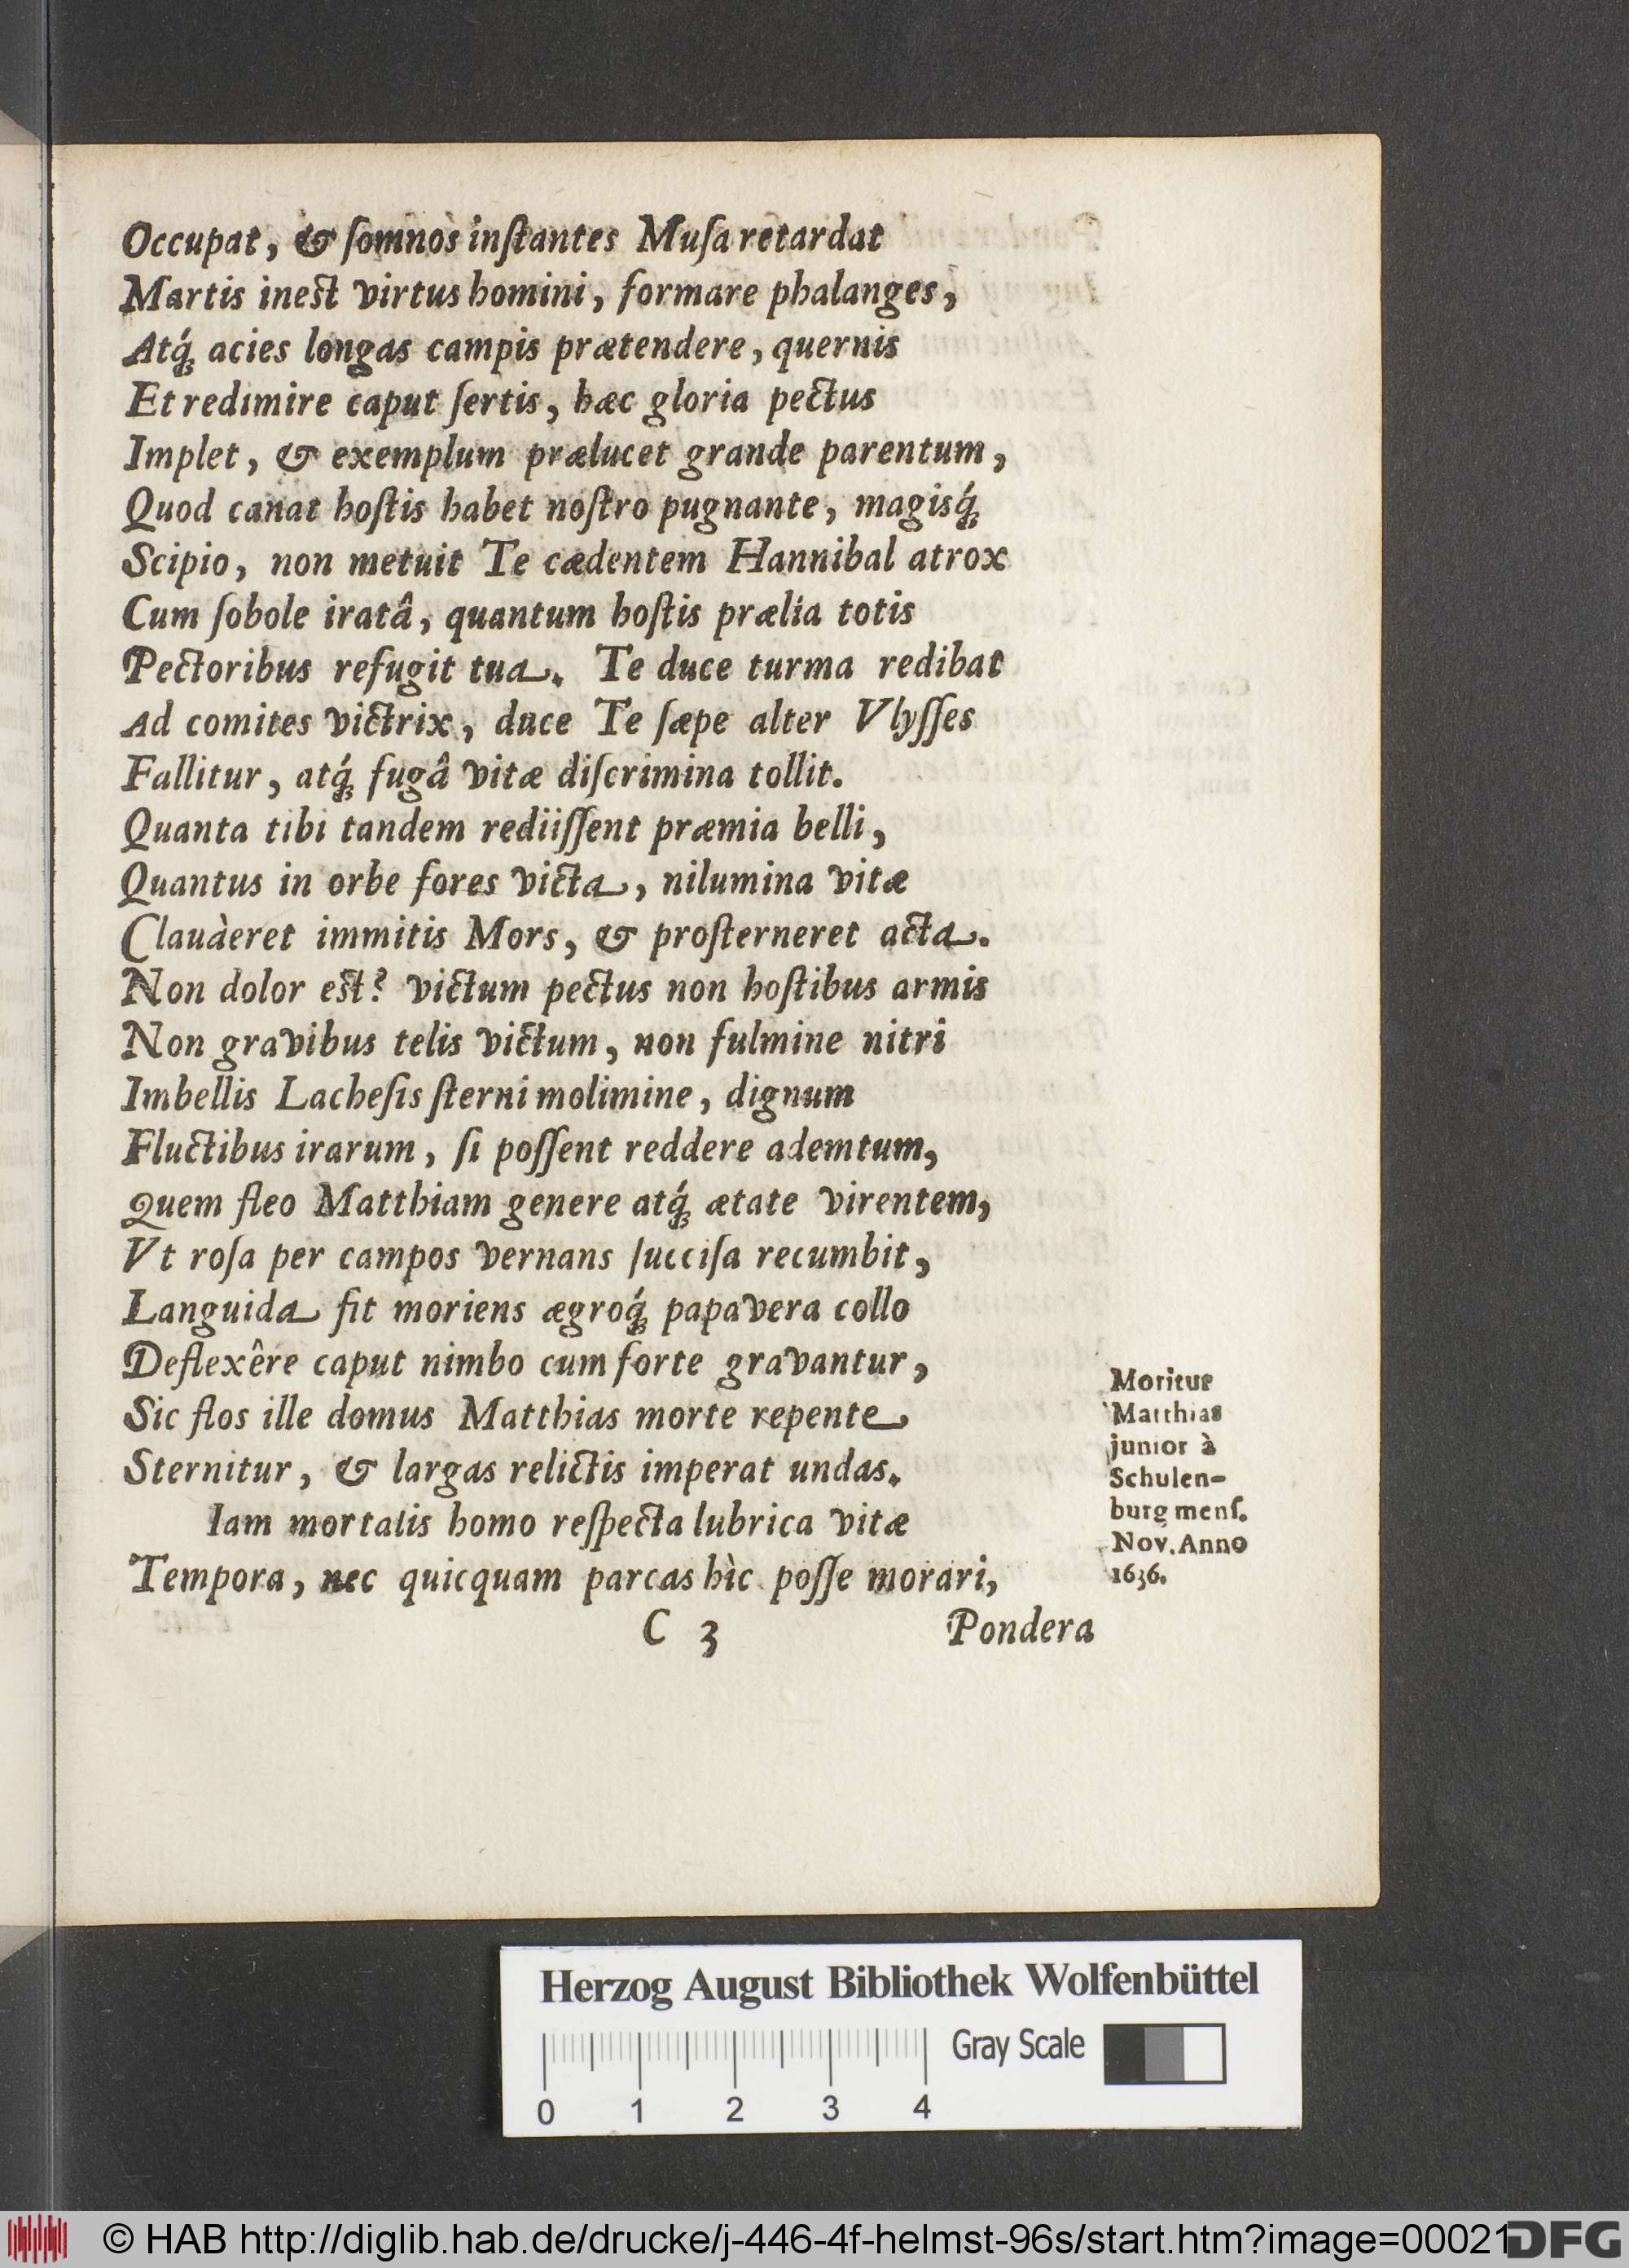 Occupat, & ſomnos inſtantes Muſa retardat
Martis inest virtus homini, formare phalanges,
Atq́ꝫ acies longas campis prætendere, quernis
Et redimire caput ſertis, hæc gloria pectus
Implet, & exemplum prælucet grande parentum,
Quod canat hoſtis habet noſtro pugnante, magisq́ꝫ
Scipio, non metuit Te cædentem Hannibal atrox
Cum ſobole iratâ, quantum hoſtis prælia totis
Pectoribus refugit tua. Te duce turma redibat
Ad comites victrix, duce Te ſæpe alter Vlyſſes
Fallitur, atq́ꝫ fugâ vitæ diſcrimina tollit.
Quanta tibi tandem rediiſſent præmia belli,
Quantus in orbe fores victa, nilumina vitæ
Clauderet immitis Mors, & proſterneret acta.
Non dolor est? victum pectus non hoſtibus armis
Non gravibus telis victum, non fulmine nitri
Imbellis Lacheſis ſterni molimine, dignum
Fluctibus irarum, ſi poſſent reddere ademtum,
Quem fleo Matthiam genere atq́ꝫ ætate virentem,
Vt roſa per campos vernans ſucciſa recumbit,
Languida fit moriens ægroq́ꝫ papavera collo
Deflexêre caput nimbo cum forte gravantur,
Sic flos ille domus Matthias morte repente
Sternitur, & largas relictis imperat undas.
Iam mortalis homo reſpecta lubrica vitæ
Tempora, nec quicquam parcas hìc poſſe morari,
C 3 Pondera
Moritur
Matthias
junior à
Schulen-
burg menſ.
Nov. Anno
1636.
Herzog August Bibliothek Wolfenbüttel
Gray Scale
0 1 2 3 4
© HAB http://diglib.hab.de/drucke/j-446-4f-helmst-96s/start.htm?image=00021
DFG